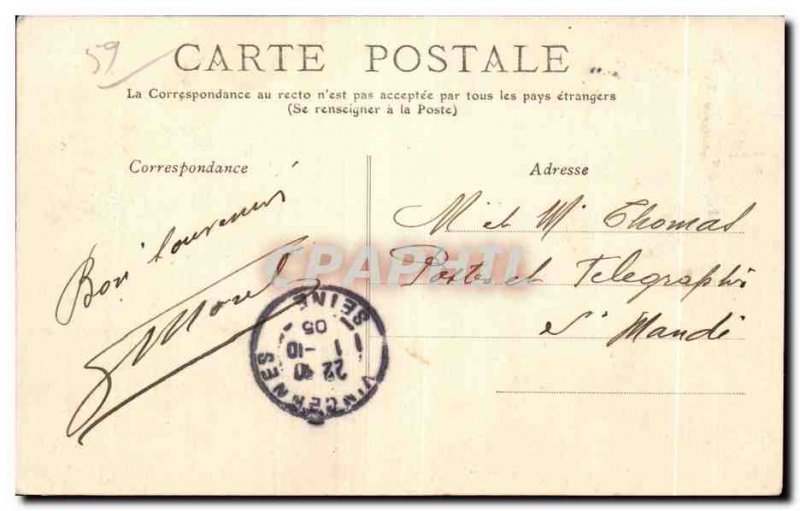 59
CARTE POSTALE
La Correspondance au recto n'est pas acceptée par tous les pays étrangers
(Se renseigner à la Poste)
Correspondance
Adresse
Bon Souvenir
Morel
M et Mme Thomas
Postes et Telegraphes
St Mandé
CPAPHIL
VINCENNES
22 10
1 -10
05
SEINE